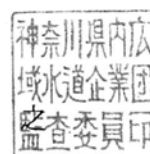 神奈川県内広
域水道企業団
之
監査委員印